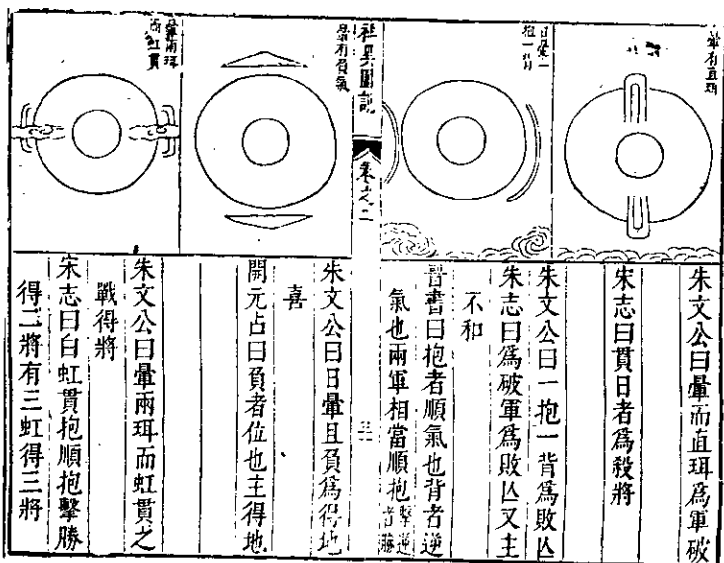 暈有直珥
朱文公曰暈而直珥爲軍破
宋志曰貫日者爲殺將
日暈一
抱一背
朱文公曰一抱一背爲敗亾
朱志曰爲破軍爲敗亾又主
不和
晉書曰抱者順氣也背者逆
氣也兩軍相當順抱擊逆
者勝
祥異圖說
卷之二
暈有負氣
朱文公曰日暈且負爲得地
喜
開元占曰負者位也主得地
暈兩珥
而虹貫
朱文公曰暈兩珥而虹貫之
戰得將
宋志曰白虹貫抱順抱擊勝
得二將有三虹得三將